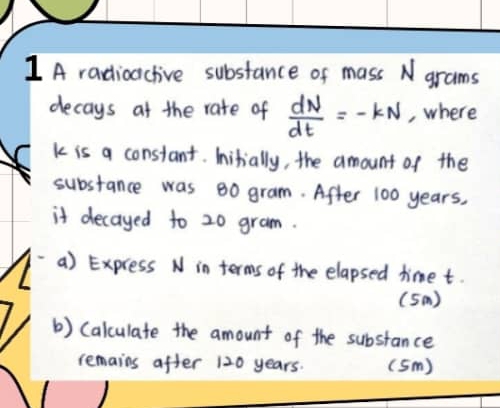 1 A radioactive substance of mass N grams
decays at the rate of dN/dt = -kN, where
k is a constant. Initially, the amount of the
substance was 80 gram. After 100 years,
it decayed to 20 gram.
- a) Express N in terms of the elapsed time t.
(5m)
b) Calculate the amount of the substance
remains after 120 years. (5m)